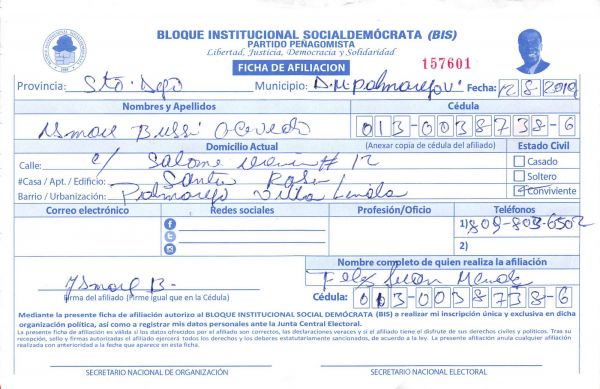 BLOQUE INSTITUCIONAL SOCIALDEMÓCRATA (BIS)
PARTIDO PEÑAGOMISTA
Libertad, Justicia, Democracia y Solidaridad
FICHA DE AFILIACION
157601
Provincia: Sto. Dgo Municipio: D.M Palmarejo V. Fecha: 12-8-2019
Nombres y Apellidos Cédula
Ismael Bussi Acevedo 013-0038738-6
Domicilio Actual (Anexar copia de cédula del afiliado) Estado Civil
Calle: C/ Salome # 12 Casado
#Casa / Apt. / Edificio: Santa Rosa Soltero
Barrio / Urbanización: Palmarejo Villa Linda Conviviente
Correo electrónico Redes sociales Profesión/Oficio Teléfonos
1) 809-803-6502
2)
Nombre completo de quien realiza la afiliación
Ismael B. Mendez
Firma del afiliado (Firme igual que en la Cédula) Cédula: 013-0038738-6
Mediante la presente ficha de afiliación autorizo al BLOQUE INSTITUCIONAL SOCIAL DEMÓCRATA (BIS) a realizar mi inscripción única y exclusiva en dicha
organización política, así como a registrar mis datos personales ante la Junta Central Electoral.
La presente ficha de afiliación es válida si los datos ofrecidos por el afiliado son correctos, las declaraciones veraces y si el afiliado tiene el disfrute de sus derechos civiles y políticos. Tras su
recepción, sello y firmas autorizadas el afiliado ejercerá todos los derechos y los deberes estatutariamente sancionados, de acuerdo a la ley. La presente afiliación anula cualquier afiliación
realizada con anterioridad a la fecha que aparece en esta ficha.
SECRETARIO NACIONAL DE ORGANIZACIÓN SECRETARIO NACIONAL ELECTORAL